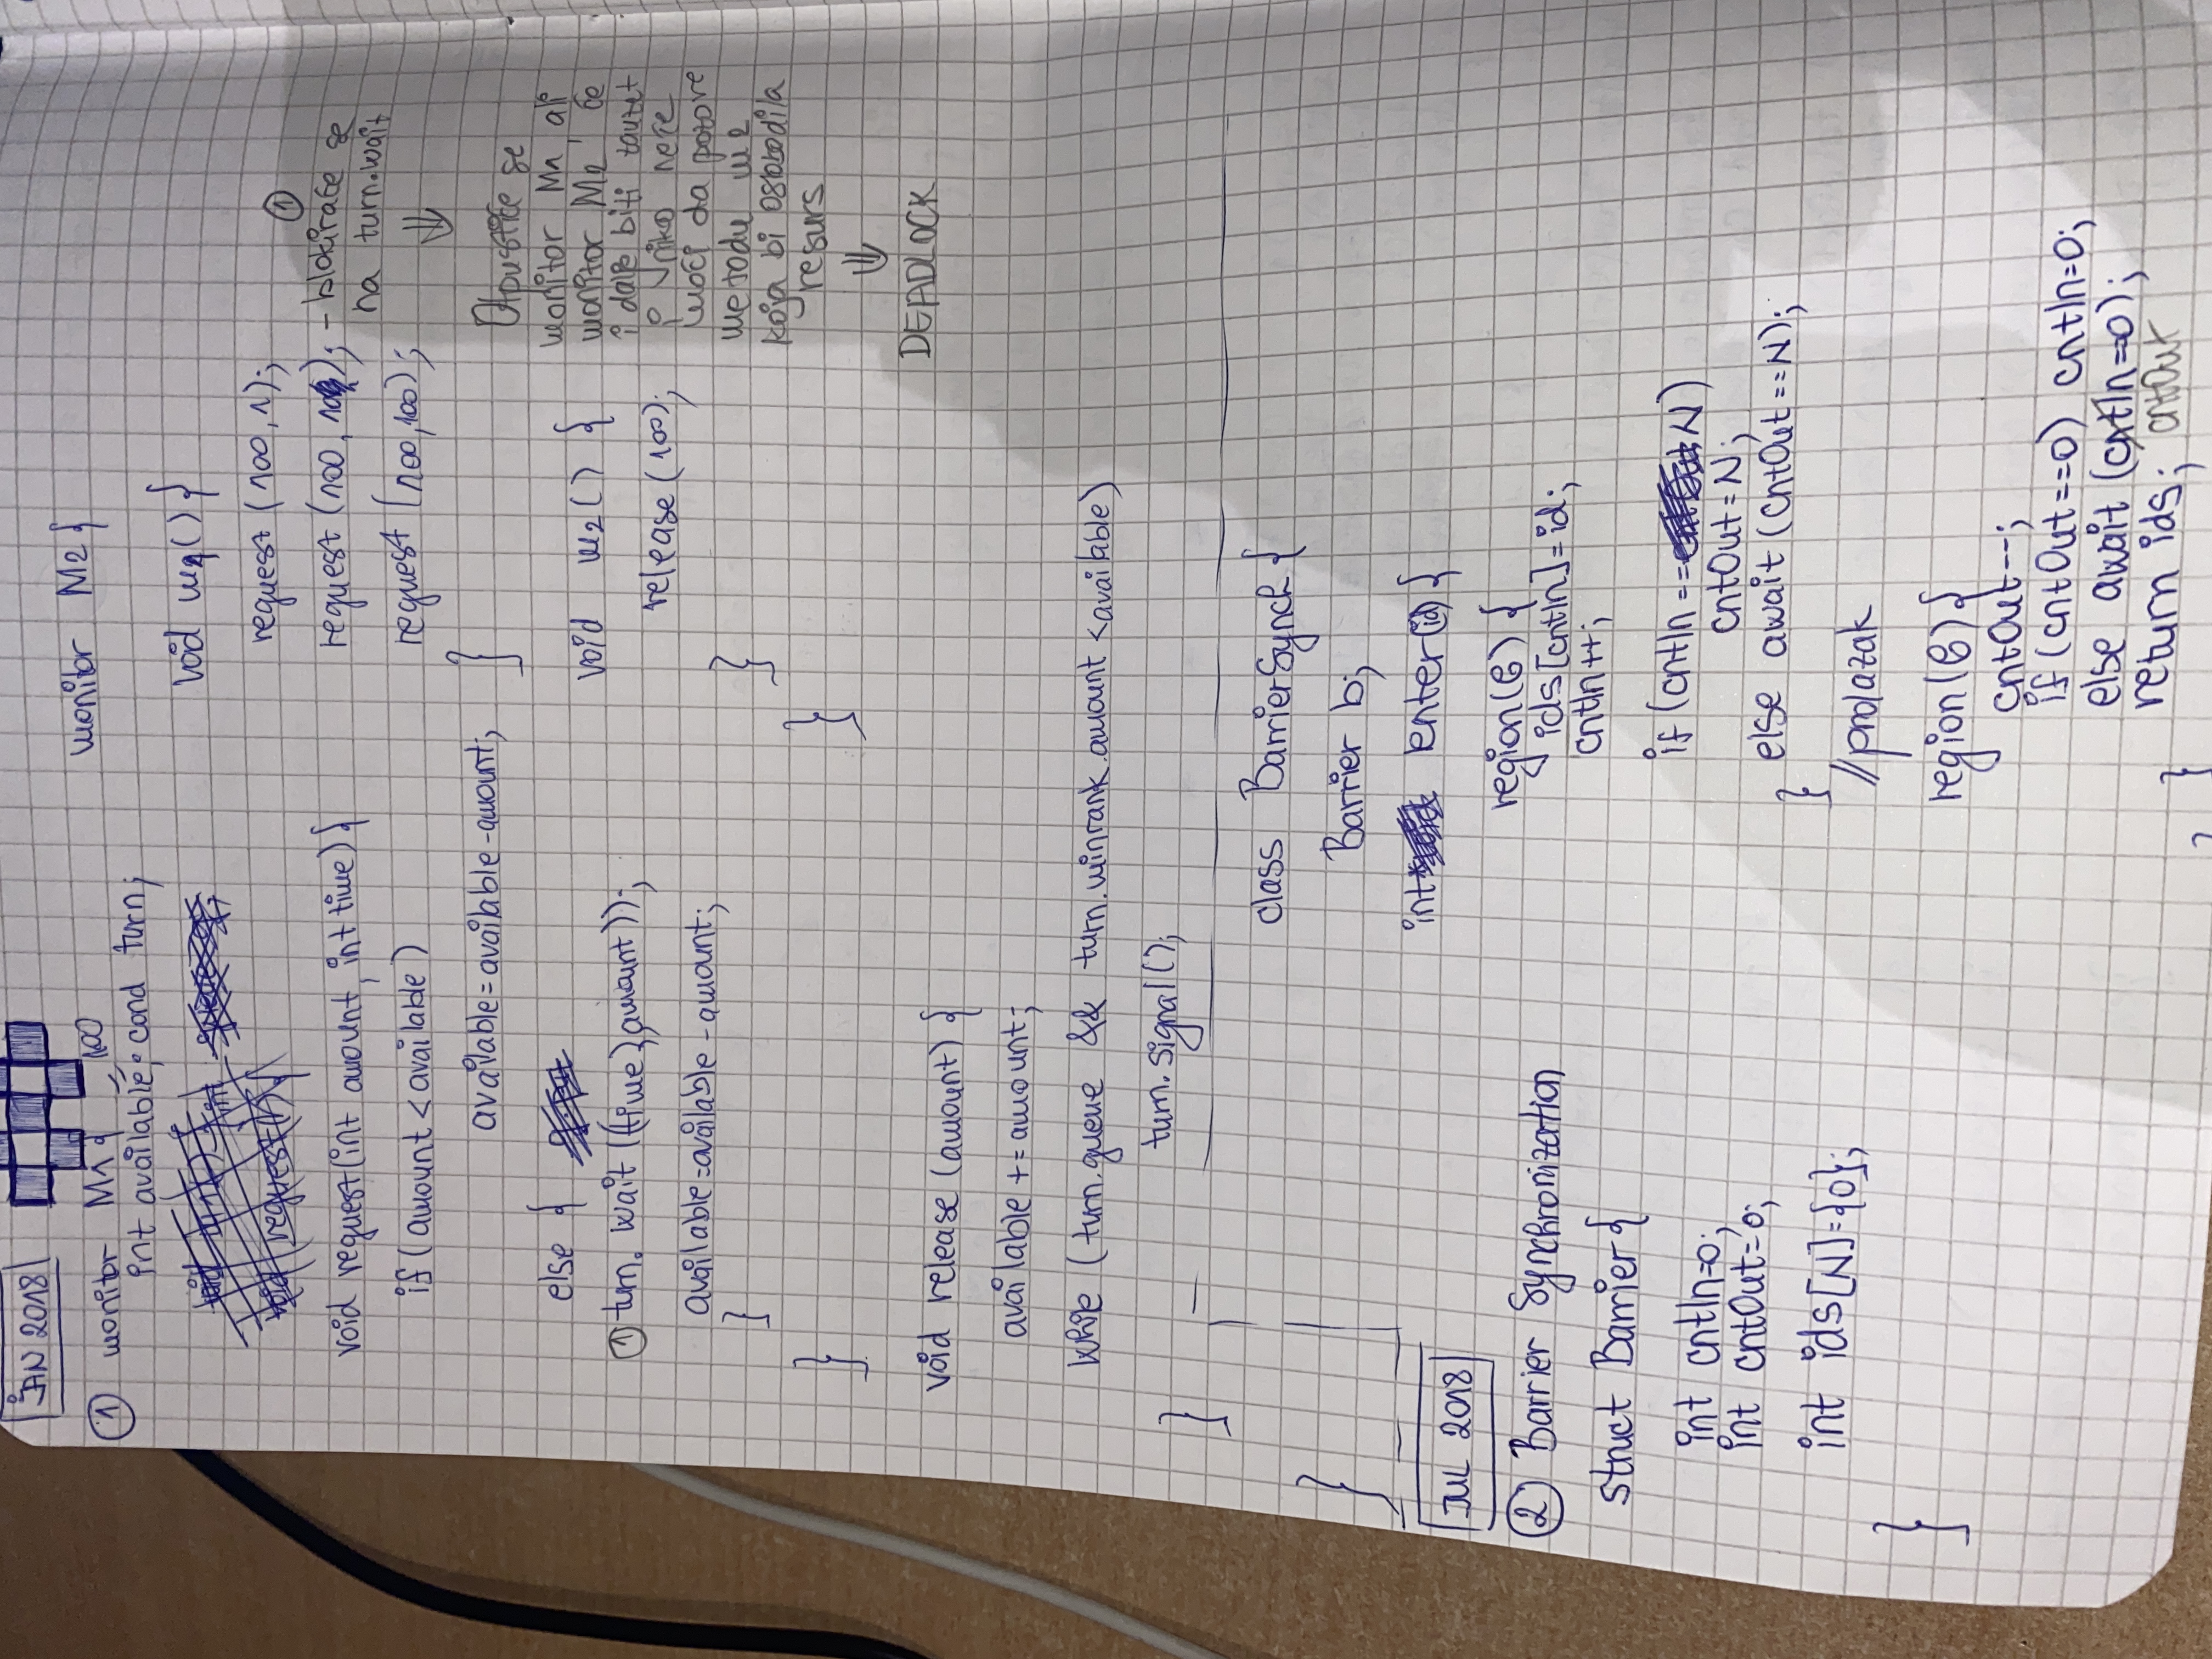 JAN 2018
1 monitor M1 {
int available = 100; cond turn;
void request(int amount, int time) {
if (amount < available)
available = available - amount;
else {
1 turn. wait ((time, amount));
available = available - amount;
}
}
void release (amount) {
available += amount;
while (turn.queue && turn.minrank.amount < available)
turn.signal();
}
}
monitor M2 {
void m1() {
request (100, 1);
request (100, 10);
request (100, 100);
}
void m2() {
release (100);
}
}
1
- blokiraće se
na turn.wait
⇓
Otpustiće se
monitor M1, ali
monitor M2 će
i dalje biti zauzet
i niko neće
moći da pozove
metodu m2
koja bi oslobodila
resurs
⇓
DEADLOCK
JUL 2018
2 Barrier Synchronization
struct Barrier {
int cntIn=0;
int cntOut=0;
int ids[N]={0};
}
class BarrierSynch {
Barrier b;
int enter(id) {
region(b) {
ids[cntIn]=id;
cntIn++;
if (cntIn == N)
cntOut=N;
else await (cntOut==N);
}
//prolazak
region(b) {
cntOut--;
if (cntOut==0) cntIn=0;
else await (cntIn==0);
return ids; cntOut
}
}